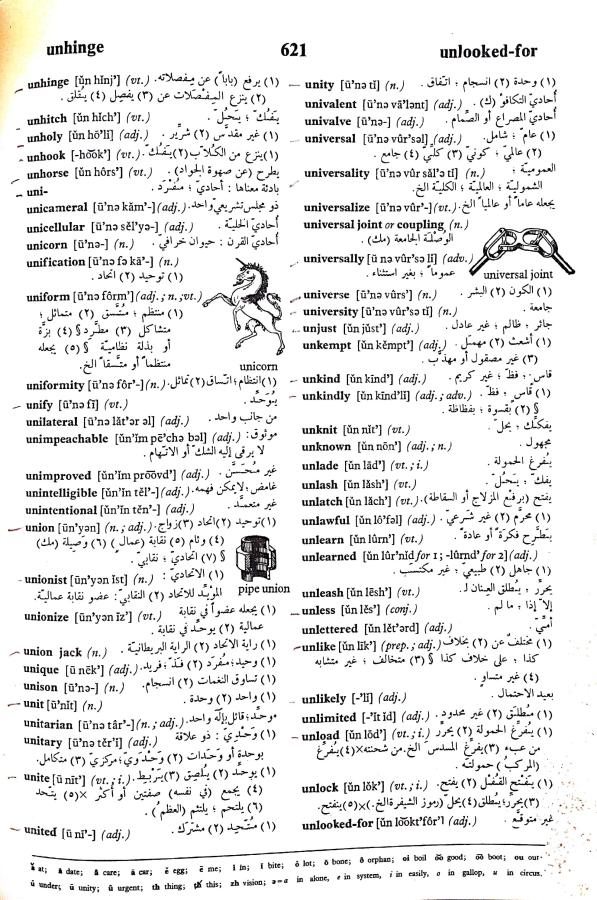 unhinge
621
unlooked-for
unhinge [ŭn hĭnj'] (vt.) (١) يرفع (باباً) عن مِفصلاته.
(٢) ينزع المِفْصلات عن (٣) يفصل (٤) يُقلق.
unhitch [ŭn hĭch'] (vt.) يَفُكّ؛ يَحُلّ.
unholy [ŭn hō'lĭ] (adj.) (١) غير مقدَّس (٢) شرّير.
unhook [-hŏŏk'] (vt.) (١) ينزع من الكُلّاب (٢) يَفُكّ.
unhorse [ŭn hôrs'] (vt.) يطرح (عن صهوة الجواد).
uni- بادئة معناها: أحاديّ؛ مُفْرَد.
unicameral [ū'nə kăm'-] (adj.) ذو مجلس تشريعيّ واحد.
unicellular [ū'nə sĕl'yə-] (adj.) أحاديّ الخليّة.
unicorn [ū'nə-] (n.) أحاديّ القرن: حيوان خرافي.
unification [ū'nə fə kā'-] (n.)
(١) توحيد (٢) اتحاد.
uniform [ū'nə fôrm'] (adj.; n.; vt.)
(١) منتظم؛ مُتَّسق (٢) متماثل؛
متشاكل (٣) مطَّرد § (٤) بِزَّة
أو بذلة نظاميّة § (٥) يجعله
منتظماً أو متَّسقاً الخ.
unicorn
uniformity [ū'nə fôr'-] (n.) (١) انتظام؛ اتّساق (٢) تماثل.
unify [ū'nə fī] (vt.) يُوَحِّد.
unilateral [ū'nə lăt'ər əl] (adj.) من جانب واحد.
unimpeachable [ŭn'ĭm pē'chə bəl] (adj.) موثوق:
لا يرقى إليه الشك أو الاتهام.
unimproved [ŭn'ĭm prōōvd'] (adj.) غير مُحسَّن.
unintelligible [ŭn'ĭn tĕl'-] (adj.) غامض؛ لا يمكن فهمه.
unintentional [ŭn'ĭn tĕn'-] (adj.) غير متعمَّد.
union [ūn'yən] (n.; adj.) (١) توحيد (٢) اتحاد (٣) زواج.
(٤) وئام (٥) نقابة (عمال) (٦) وَصيلة (مك)
§ (٧) اتحاديّ؛ نقابيّ.
unionist [ūn'yən ĭst] (n.) (١) الاتحاديّ:
المؤيِّد للاتحاد (٢) النقابيّ: عضو نقابة عماليّة.
pipe union
unionize [ūn'yən īz'] (vt.) (١) يجعله عضواً في نقابة
عمالية (٢) يوحِّد في نقابة.
union jack (n.) (١) راية الاتحاد (٢) الراية البريطانيّة.
unique [ū nēk'] (adj.) (١) وحيد؛ مُفرَد (٢) فَذّ؛ فريد.
unison [ū'nə-] (n.) (١) تساوق النغمات (٢) انسجام.
unit [ū'nĭt] (n.) (١) واحد (٢) وحدة.
unitarian [ū'nə târ'-] (n.; adj.) موحِّد؛ قائل بإله واحد.
unitary [ū'nə tĕr'ĭ] (adj.) (١) وَحْديّ: ذو علاقة
بوحدة أو وَحدات (٢) وَحْدَوي؛ مركزيّ (٣) متكامل.
unite [ū nīt'] (vt.; i.) (١) يوحِّد (٢) يُلصق (٣) يَرْبط.
(٤) يجمع (في نفسه) صفتين أو أكثر ×(٥) يتّحد
(٦) يلتحم؛ يلتئم (العظم).
united [ū nī'-] (adj.) (١) مُتَّحِد (٢) مشترَك.
unity [ū'nə tĭ] (n.) (١) وحدة (٢) انسجام؛ اتفاق.
univalent [ū'nə vā'lənt] (adj.) أحاديّ التكافؤ (ك).
univalve [ū'nə-] (adj.) أحاديّ المصراع أو الصِّمام.
universal [ū'nə vûr'səl] (adj.) (١) عامّ؛ شامل.
(٢) عالميّ؛ كونيّ (٣) كلّيّ (٤) جامع.
universality [ū'nə vûr săl'ə tĭ] (n.) العموميّة؛
الشموليّة؛ العالميّة؛ الكليّة الخ.
universalize [ū'nə vûr'-] (vt.) يجعله عاماً أو عالمياً الخ.
universal joint or coupling (n.)
الوصْلة الجامعة (مك).
universally [ū nə vûr'sə lĭ] (adv.)
عموماً؛ بغير استثناء.
universal joint
universe [ū'nə vûrs'] (n.) (١) الكون (٢) البشر.
university [ū'nə vûr'sə tĭ] (n.) جامعة.
unjust [ŭn jŭst'] (adj.) جائر؛ ظالم؛ غير عادل.
unkempt [ŭn kĕmpt'] (adj.) (١) أشعث (٢) مهمَل.
(٣) غير مصقول أو مهذَّب.
unkind [ŭn kīnd'] (adj.) قاسٍ؛ فظّ؛ غير كريم.
unkindly [ŭn kīnd'lĭ] (adj.; adv.) (١) قاسٍ؛ فظّ.
§ (٢) بقسوة؛ بفظاظة.
unknit [ŭn nĭt'] (vt.) يفكّك؛ يحلّ.
unknown [ŭn nōn'] (adj.; n.) مجهول.
unlade [ŭn lād'] (vt.; i.) يُفرغ الحمولة.
unlash [ŭn lăsh'] (vt.) يفك؛ يَحُلّ.
unlatch [ŭn lăch'] (vt.) يفتح (برفع المزلاج أو السقاطة).
unlawful [ŭn lô'fəl] (adj.) (١) محرَّم (٢) غير شرعيّ.
unlearn [ŭn lûrn'] (vt.) يَطَّرح فكرةً أو عادة.
unlearned [ŭn lûr'nĭd for 1; -lûrnd' for 2] (adj.)
(١) جاهل (٢) طبيعيّ؛ غير مكتسب.
unleash [ŭn lēsh'] (vt.) يحرِّر؛ يُطلق العِنان لـ.
unless [ŭn lĕs'] (conj.) إلّا إذا؛ ما لم.
unlettered [ŭn lĕt'ərd] (adj.) أمّيّ.
unlike [ŭn līk'] (prep.; adj.) (١) مختلفٌ عن (٢) بخلاف
كذا؛ على خلاف كذا § (٣) متخالف؛ غير متشابه
(٤) غير متساوٍ.
unlikely [-'lĭ] (adj.) بعيد الاحتمال.
unlimited [-'ĭt ĭd] (adj.) (١) مُطلَق (٢) غير محدود.
unload [ŭn lōd'] (vt.; i.) (١) يُفرغ الحمولة (٢) يحرر
من عبء (٣) يفرغ المسدس الخ. من شحنته ×(٤) يُفرغ
(المركبُ) حمولته.
unlock [ŭn lŏk'] (vt.; i.) (١) يَفتح القُفْل (٢) يفتح.
(٣) يحرِّر؛ يُطلق (٤) يحلّ (رموز الشيفرة الخ.) ×(٥) ينفتح.
unlooked-for [ŭn lŏŏkt'fôr'] (adj.) غير متوقَّع.
ă at; ā date; â care; ä car; ĕ egg; ē me; ĭ in; ī bite; ŏ lot; ō bone; ô orphan; oi boil ŏŏ good; ōō boot; ou our;
ŭ under; ū unity; û urgent; th thing; th this; zh vision; ə=a in alone, e in system, i in easily, o in gallop, u in circus.